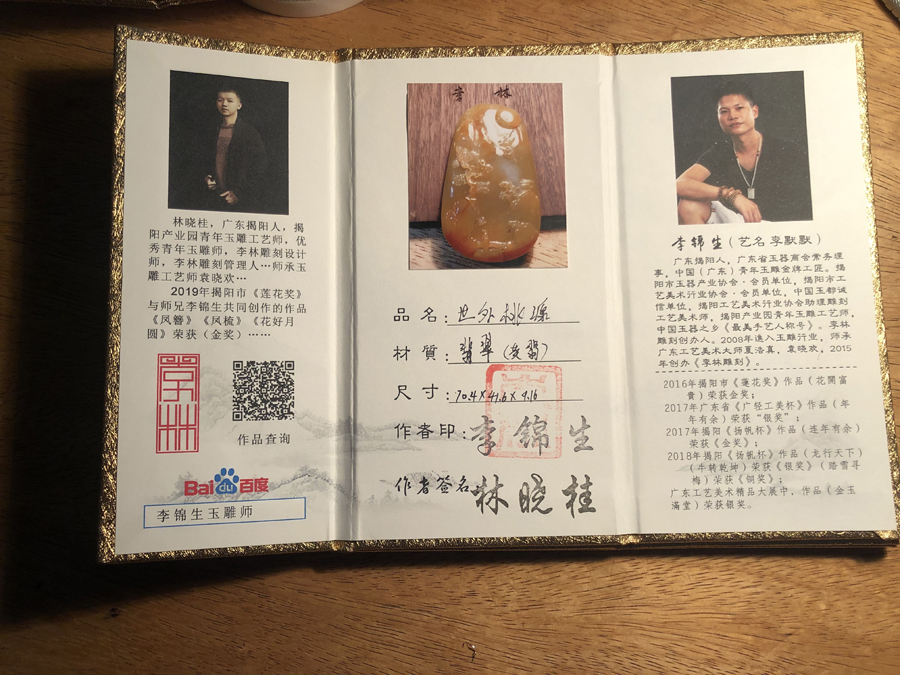 林晓桂，广东揭阳人，揭
阳产业园青年玉雕工艺师，优
秀青年玉雕师，李林雕刻设计
师，李林雕刻管理人…师承玉
雕工艺师袁晓欢…
2019年揭阳市《莲花奖》
与师兄李锦生共同创作的作品
《凤簪》《凤梳》《花好月
圆》荣获（金奖）……
作品查询
Bai du 百度
李锦生玉雕师
品名：世外桃源
材質：翡翠（黄翡）
尺寸：70.4X41.6X9.16
作者印：李锦生
作者签名：林晓桂
李锦生（艺名李默默）
广东揭阳人，广东省玉器商会常务理
事，中国（广东）青年玉雕金牌工匠。揭
阳市玉器产业协会·会员单位，揭阳市工
艺美术行业协会·会员单位，中国玉都诚
信单位，揭阳工艺美术行业协会助理雕刻
工艺美术师，揭阳产业园青年玉雕工艺师，
中国玉器之乡《最美手艺人称号》。李林
雕刻创办人。2008年進入玉雕行业，师承
广东工艺美术大师夏浩真，袁晓欢，2015
年创办《李林雕刻》。
2016年揭阳市《蓮花奖》作品（花開富
貴）荣获金奖；
2017年广东省《广轻工美杯》作品（年
年有余）荣获"银奖"；
2017年揭阳《扬帆杯》作品（连年有余）
荣获《金奖》；
2018年揭阳《扬帆杯》作品（龙行天下）
（牛转乾坤）荣获《银奖》（踏雪寻
梅）荣获《铜奖》；
广东工艺美术精品大展中，作品（金玉
满堂）荣获银奖。